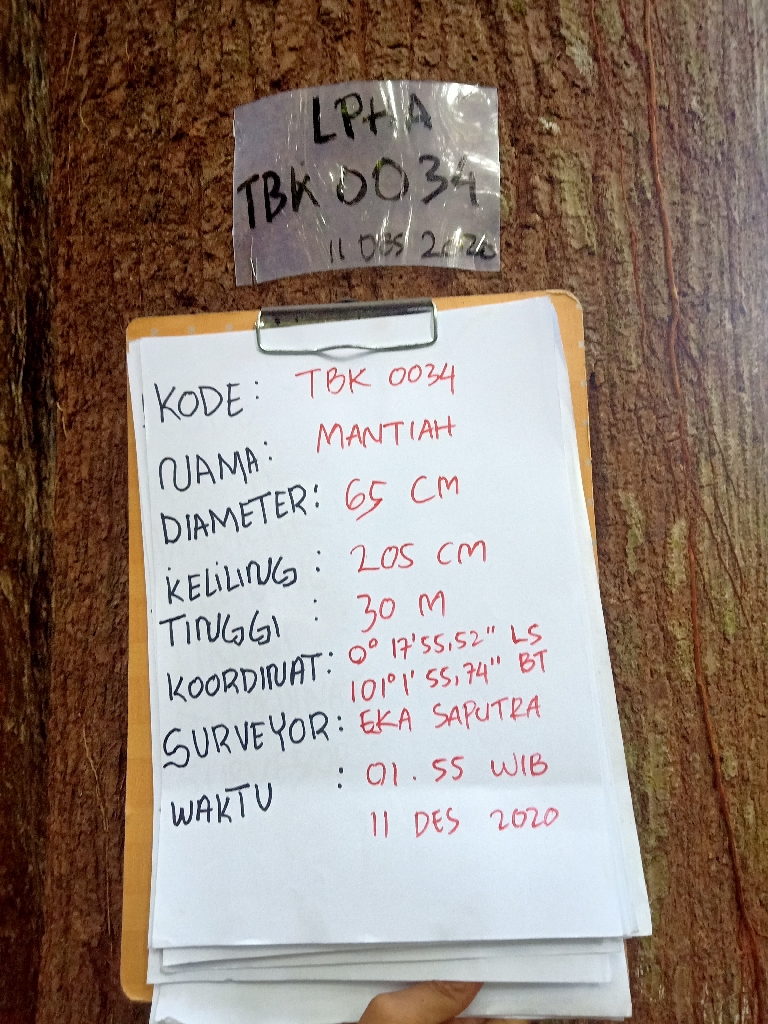 LPHA
TBK 0034
11 DES 2020
KODE: TBK 0034
NAMA: MANTIAH
DIAMETER: 65 CM
KELILING : 205 CM
TINGGI : 30 M
KOORDINAT: 0° 17'55,52" LS
101°1'55,74" BT
SURVEYOR: EKA SAPUTRA
WAKTU : 01.55 WIB
11 DES 2020